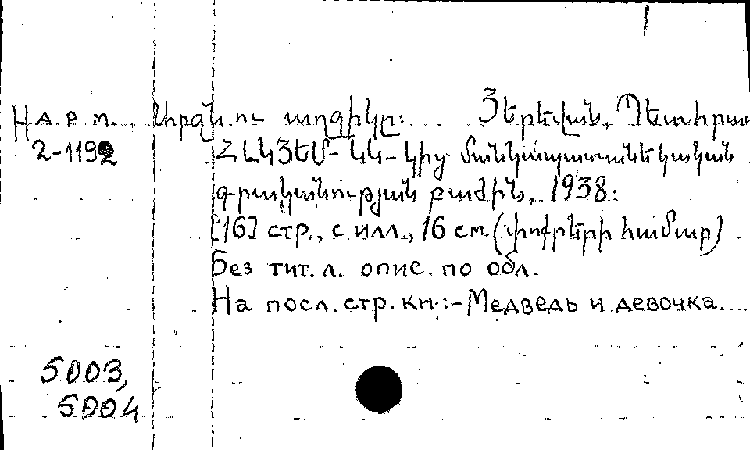 Нар.п. Արջն ու աղջիկը: .... Յերեվան, Պետհրատ
2-1192 ՀԼԿՅԵՄ-ԿԿ-կից մանկապատանեկական
գրականության բաժին, 1938:
[16] стр., с илл., 16 см. (փոքրերի համար)
Без тит. л. опис. по обл.
На посл. стр. кн:- Медведь и девочка.
5003,
5004